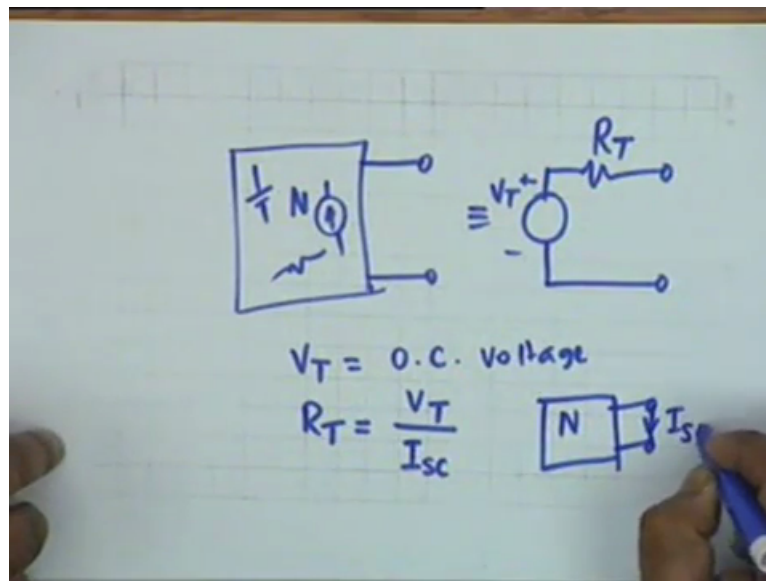 N
≡
V_T + -
R_T
V_T = O.C. voltage
R_T = V_T / I_SC
N
I_S